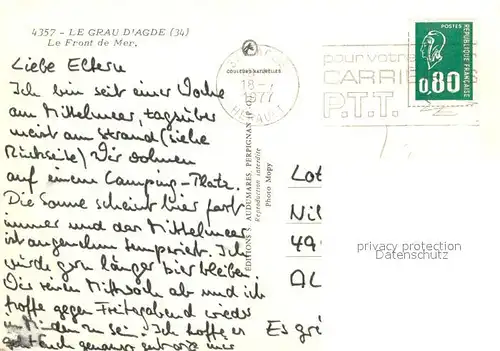 4357 - LE GRAU D'AGDE (34)
Le Front de Mer.
COULEURS NATURELLES
Liebe Eltern
Ich bin seit einer Woche
am Mittelmeer, tagsüber
meist am Strand (siehe
Rückseite) Wir wohnen
auf einem Camping-Platz.
Die Sonne scheint hier fast
immer und das Mittelmeer
ist angenehm temperiert. Ich
würde gern länger hier bleiben.
Mittwoch ab und ich
hoffe gegen Freitagabend wieder
in Minden zu sein. Ich hoffe es
geht Euch genauso gut wie mir
EDITIONS S. AUDUMARES, PERPIGNAN
Reproduction interdite
Photo Mopy
18-7
1977
HERAULT
pour votre
CARRIÈRES
P.T.T.
POSTES
0,80
REPUBLIQUE FRANÇAISE
Lot
Nil
49
privacy protection
Datenschutz
Es grü